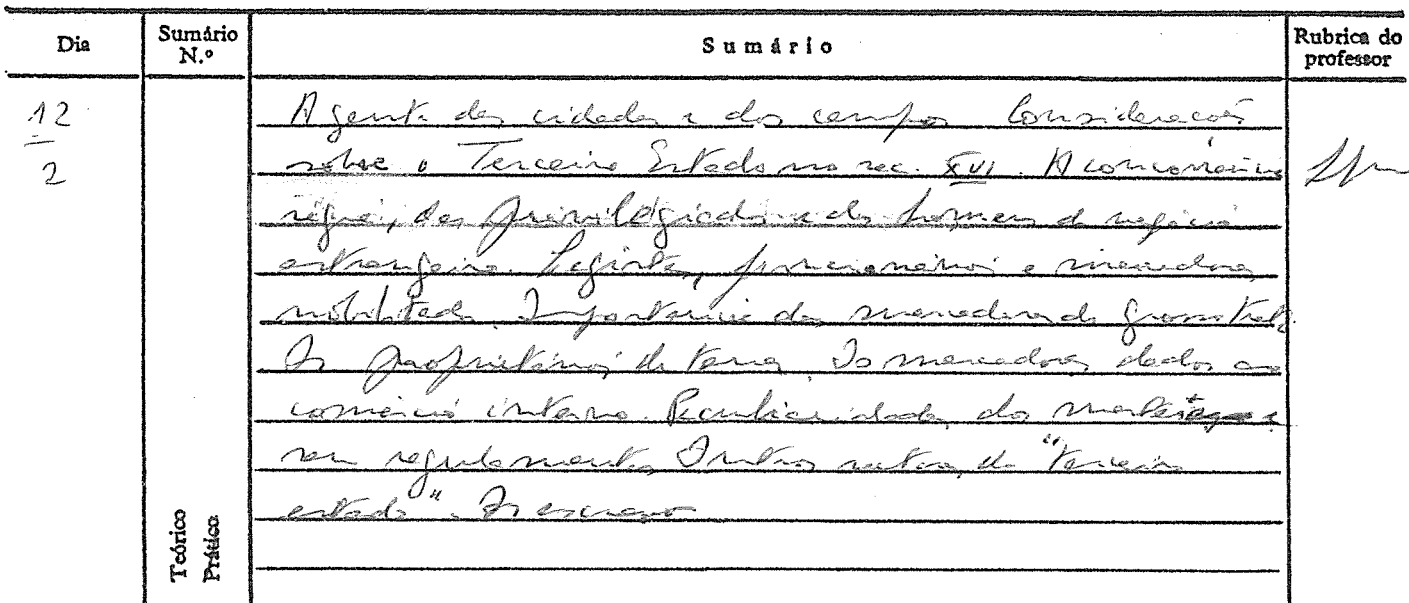 Dia Sumário N.º Sumário Rubrica do professor
12 A gente das cidades e dos campos Considerações
2 sobre o Terceiro Estado no sec. XVI. A concorrência
régia, dos privilegiados e dos homens de negócio
estrangeiros. Legistas, funcionários e mercadores
nobilitados. Importancia dos mercadores de grosso trato.
Os proprietários de terras. Os mercadores dados ao
comércio interno. Peculiaridades dos
seu regulamento. Outros de "terceiro
estado". Os escravos
Teórico
Prático